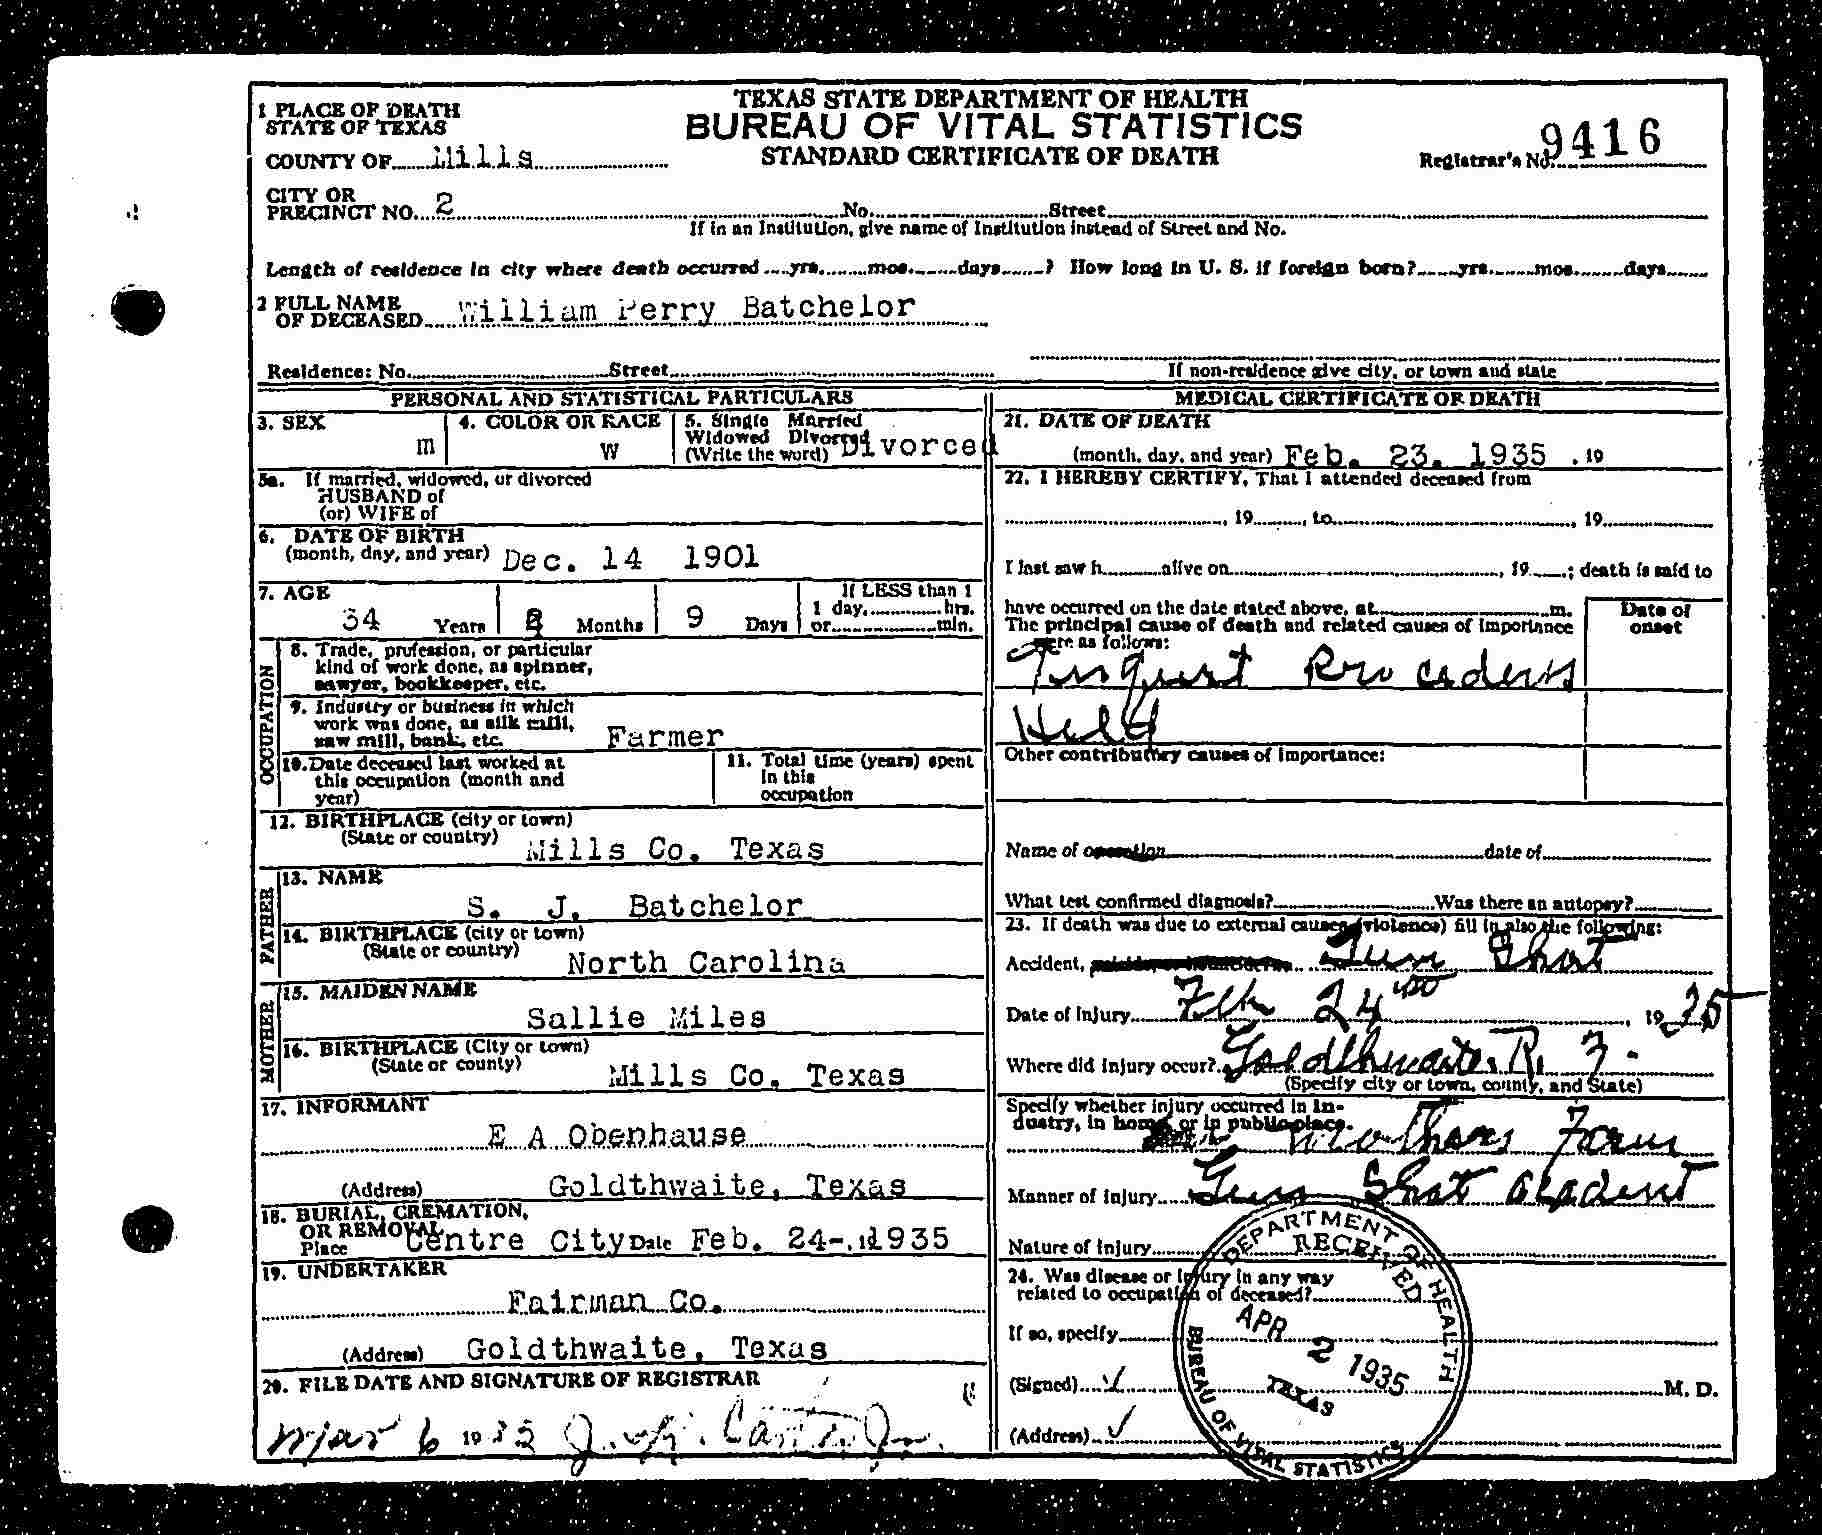 TEXAS STATE DEPARTMENT OF HEALTH
BUREAU OF VITAL STATISTICS
STANDARD CERTIFICATE OF DEATH
1 PLACE OF DEATH
STATE OF TEXAS
COUNTY OF Mills
Registrar's No. 9416
CITY OR
PRECINCT NO. 2 No. Street
If in an Institution, give name of Institution instead of Street and No.
Length of residence in city where death occurred yrs. mos. days ? How long in U. S. if foreign born? yrs. mos. days
2 FULL NAME
OF DECEASED William Perry Batchelor
Residence: No. Street
If non-residence give city, or town and state
PERSONAL AND STATISTICAL PARTICULARS
3. SEX
m
4. COLOR OR RACE
W
5. Single Married
Widowed Divorced
(Write the word) Divorced
5a. If married, widowed, or divorced
HUSBAND of
(or) WIFE of
6. DATE OF BIRTH
(month, day, and year) Dec. 14 1901
7. AGE
34 Years Months 9 Days
If LESS than 1
1 day, hrs.
or min.
OCCUPATION
8. Trade, profession, or particular
kind of work done, as spinner,
sawyer, bookkeeper, etc.
9. Industry or business in which
work was done, as silk mill,
saw mill, bank, etc. Farmer
10. Date deceased last worked at
this occupation (month and
year)
11. Total time (years) spent
in this
occupation
12. BIRTHPLACE (city or town)
(State or country) Mills Co. Texas
FATHER
13. NAME
S. J. Batchelor
14. BIRTHPLACE (city or town)
(State or country) North Carolina
MOTHER
15. MAIDEN NAME
Sallie Miles
16. BIRTHPLACE (City or town)
(State or county) Mills Co. Texas
17. INFORMANT
E A Obenhause
(Address) Goldthwaite, Texas
18. BURIAL, CREMATION,
OR REMOVAL
Place Centre City Date Feb. 24-, 1935
19. UNDERTAKER
Fairman Co.
(Address) Goldthwaite, Texas
20. FILE DATE AND SIGNATURE OF REGISTRAR
Mar 6 19
MEDICAL CERTIFICATE OF DEATH
21. DATE OF DEATH
(month, day, and year) Feb. 23. 1935 , 19
22. I HEREBY CERTIFY, That I attended deceased from
, 19 , to , 19
I last saw h alive on , 19 ; death is said to
have occurred on the date stated above, at m.
The principal cause of death and related causes of importance
were as follows:
Date of
onset
Inquest
Held
Other contributory causes of importance:
Name of operation date of
What test confirmed diagnosis? Was there an autopsy?
23. If death was due to external causes (violence) fill in also the following:
Accident, Gun Shot
Date of injury Feb 24 1935
Where did injury occur? Goldthwaite R. 3.
(Specify city or town, county, and State)
Specify whether injury occurred in in-
dustry, in home, or in public place.
Mothers Farm
Manner of Injury Gun Shot
Nature of Injury
24. Was disease or injury in any way
related to occupation of deceased?
If so, specify
(Signed) M. D.
(Address)
DEPARTMENT OF HEALTH
RECEIVED
APR 2 1935
TEXAS
BUREAU OF VITAL STATISTICS